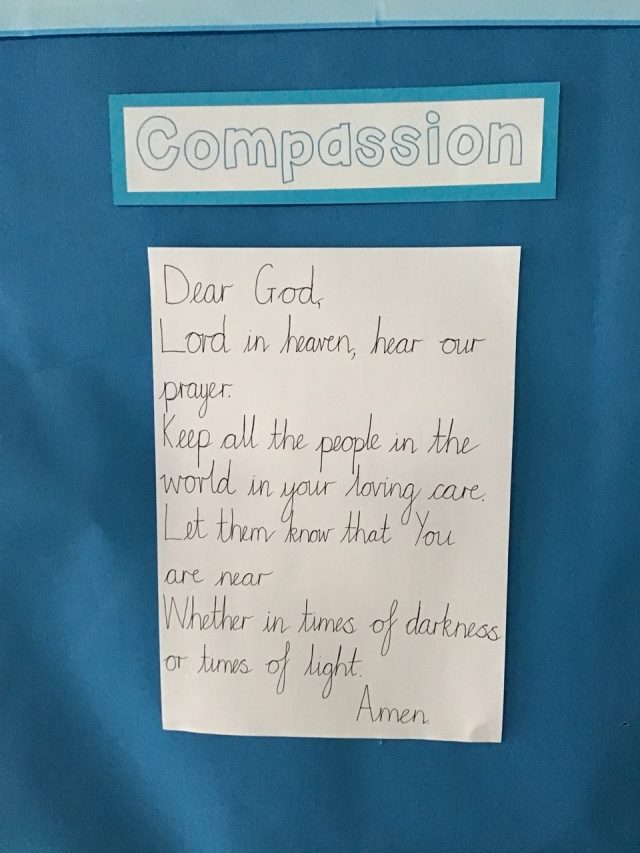 Compassion
Dear God,
Lord in heaven, hear our
prayer.
Keep all the people in the
world in your loving care.
Let them know that You
are near
Whether in times of darkness
or times of light.
Amen.